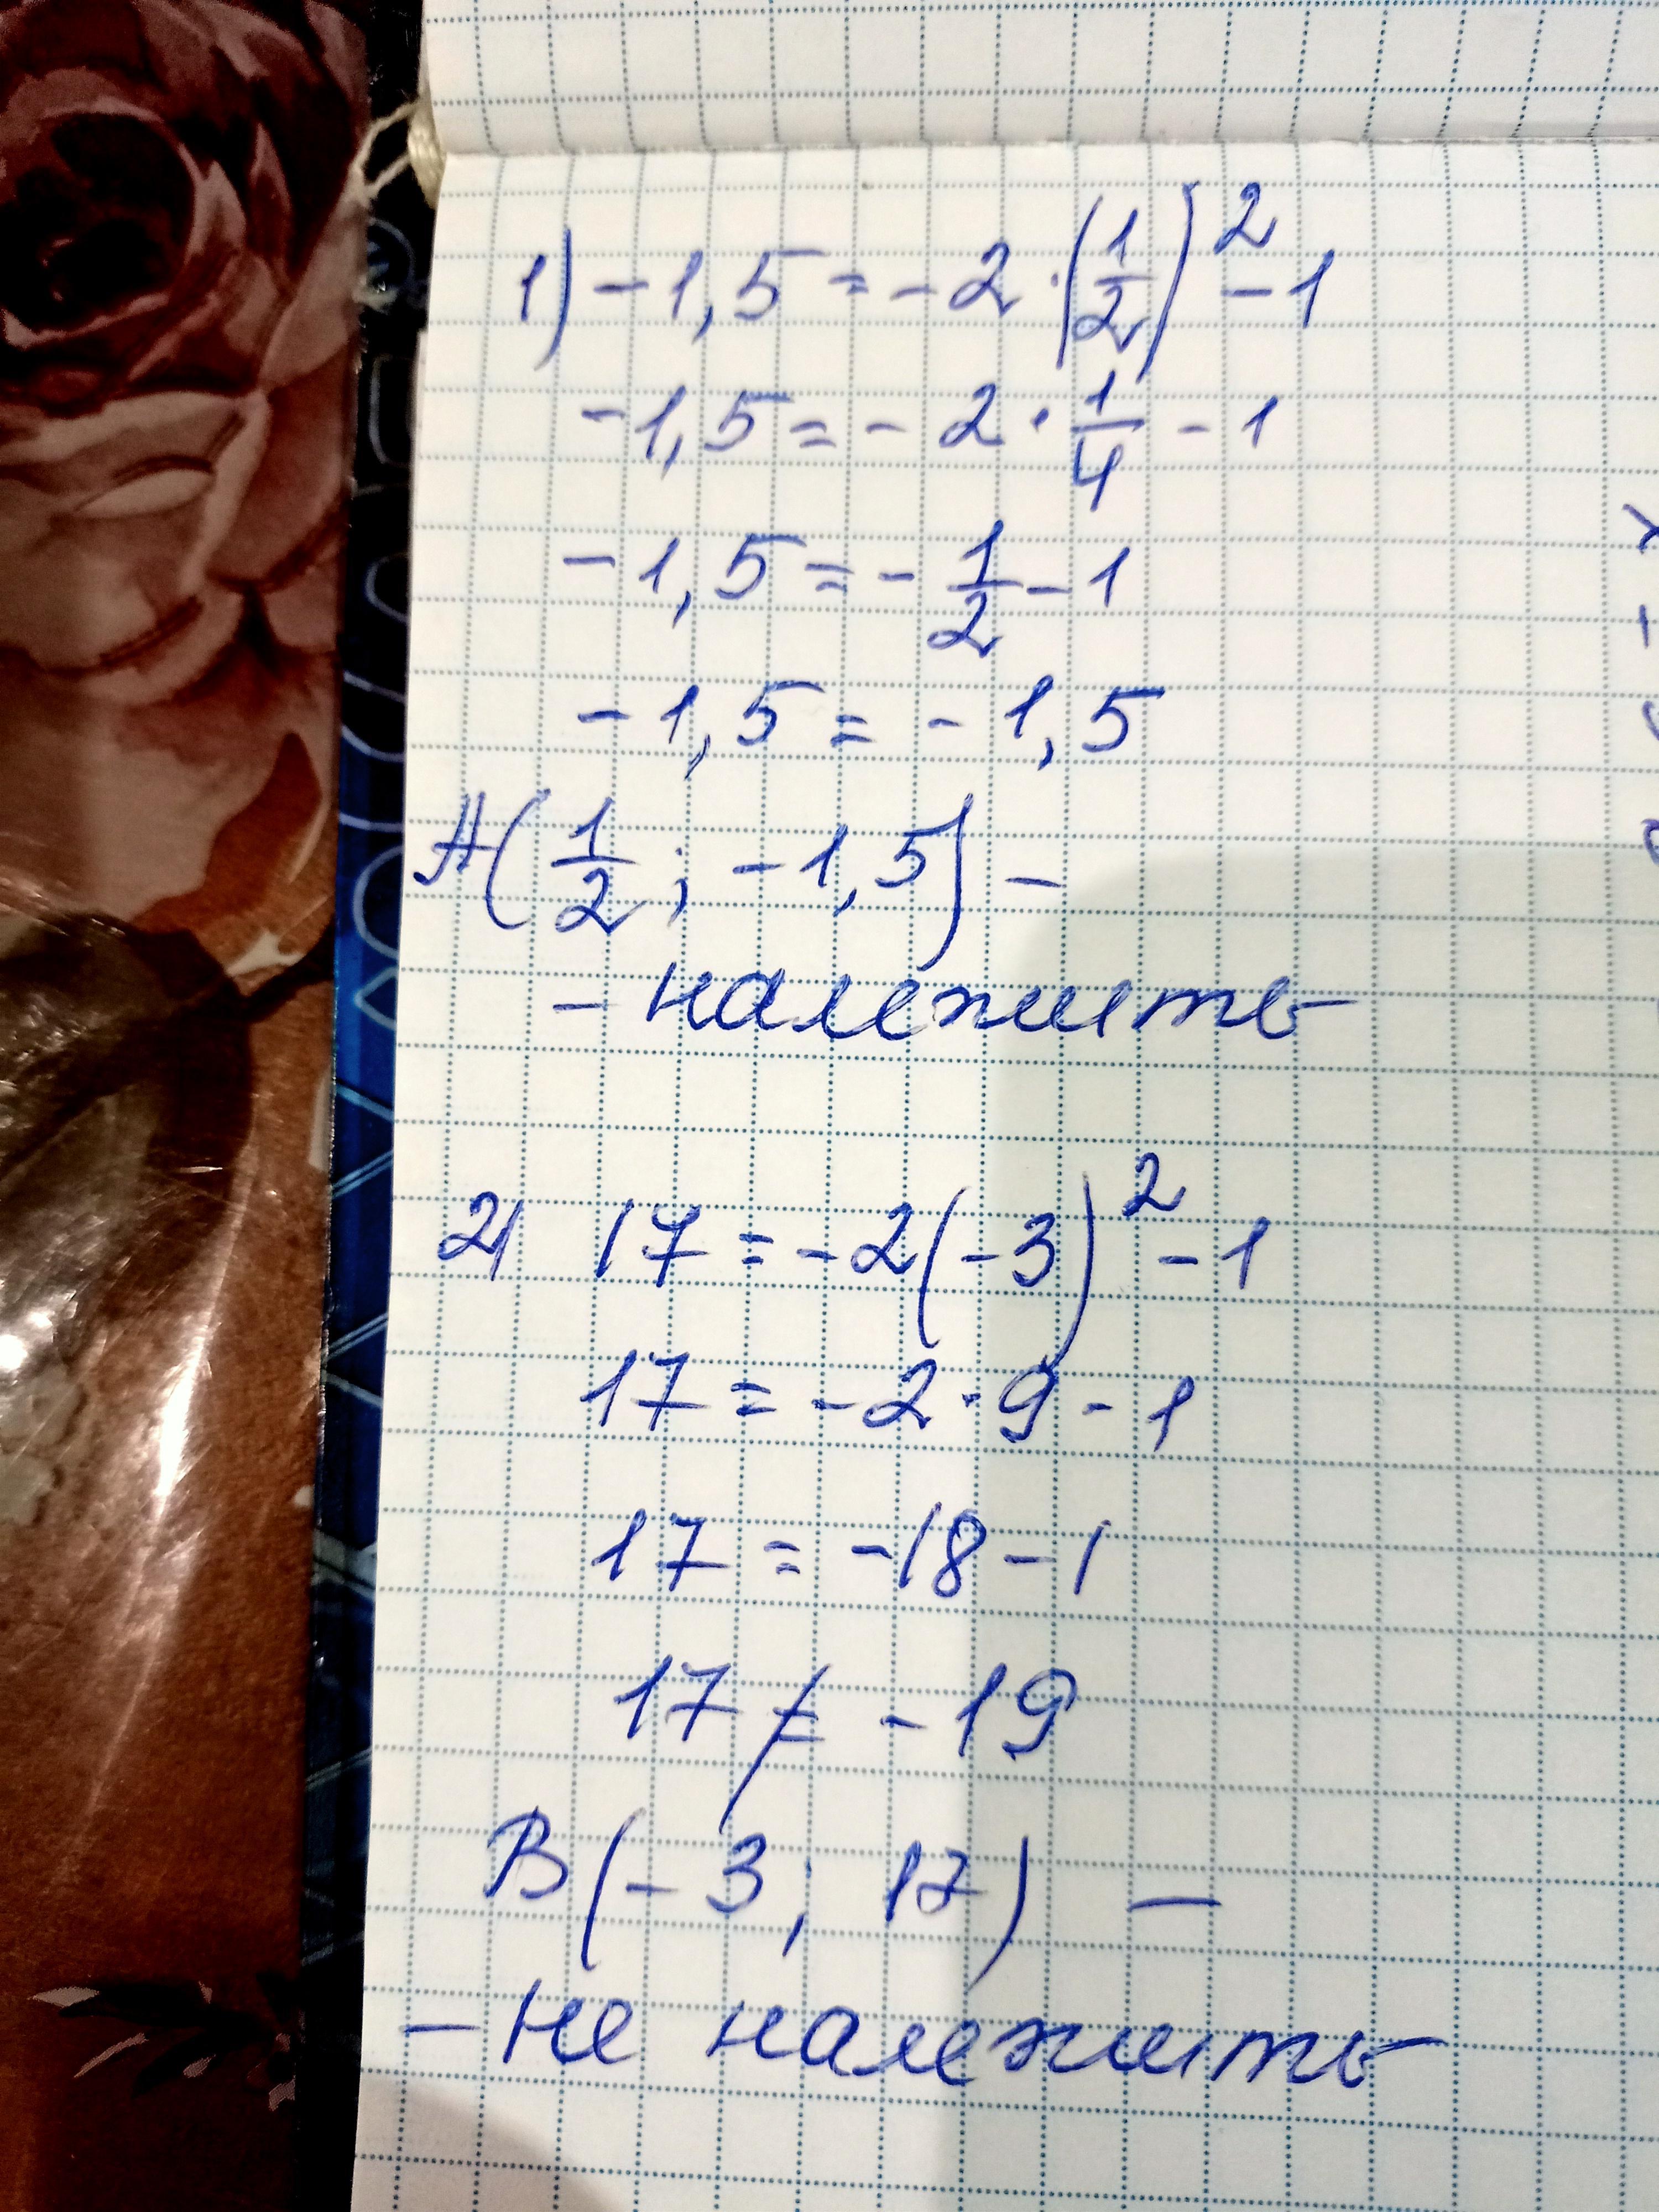 1) -1,5 = -2 · (1/2)² - 1
-1,5 = -2 · 1/4 - 1
-1,5 = -1/2 - 1
-1,5 = -1,5
A(1/2; -1,5) -
- належить
2) 17 = -2(-3)² - 1
17 = -2 · 9 - 1
17 = -18 - 1
17 ≠ -19
B(-3; 17) -
- не належить